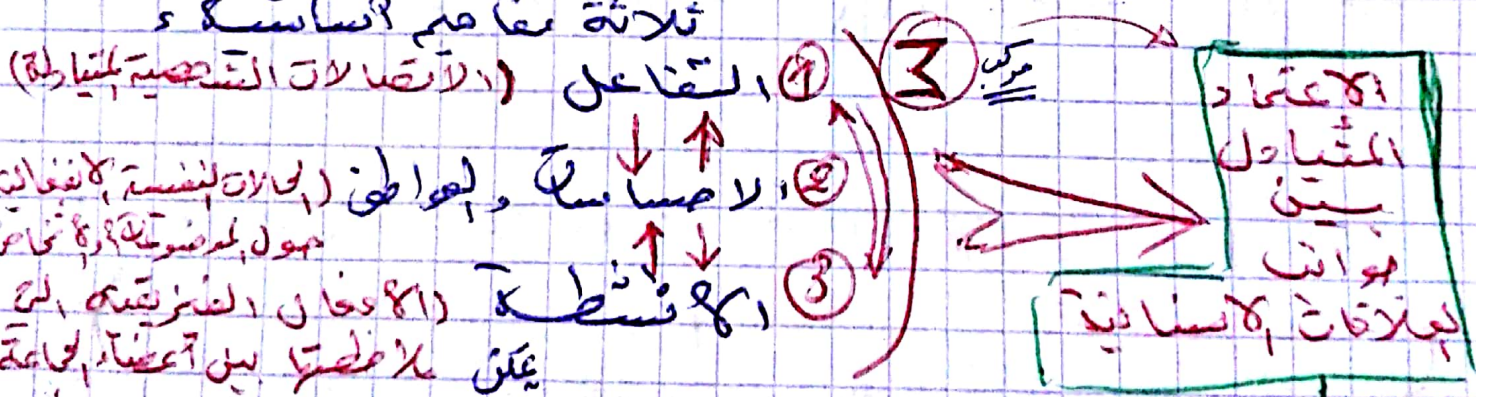 ثلاثة مفاهيم أساسية :
① التفاعل (الاتصالات الشخصية المتبادلة)
② الاحساسات والعواطف (الحالات النفسية الانفعالية
حول الموضوعات والأشخاص
③ الأنشطة (الأفعال الفيزيقية التي
يمكن ملاحظتها بين أعضاء الجماعة
Σ مركب
الاعتماد
المتبادل
بين
جوانب
العلاقات الانسانية